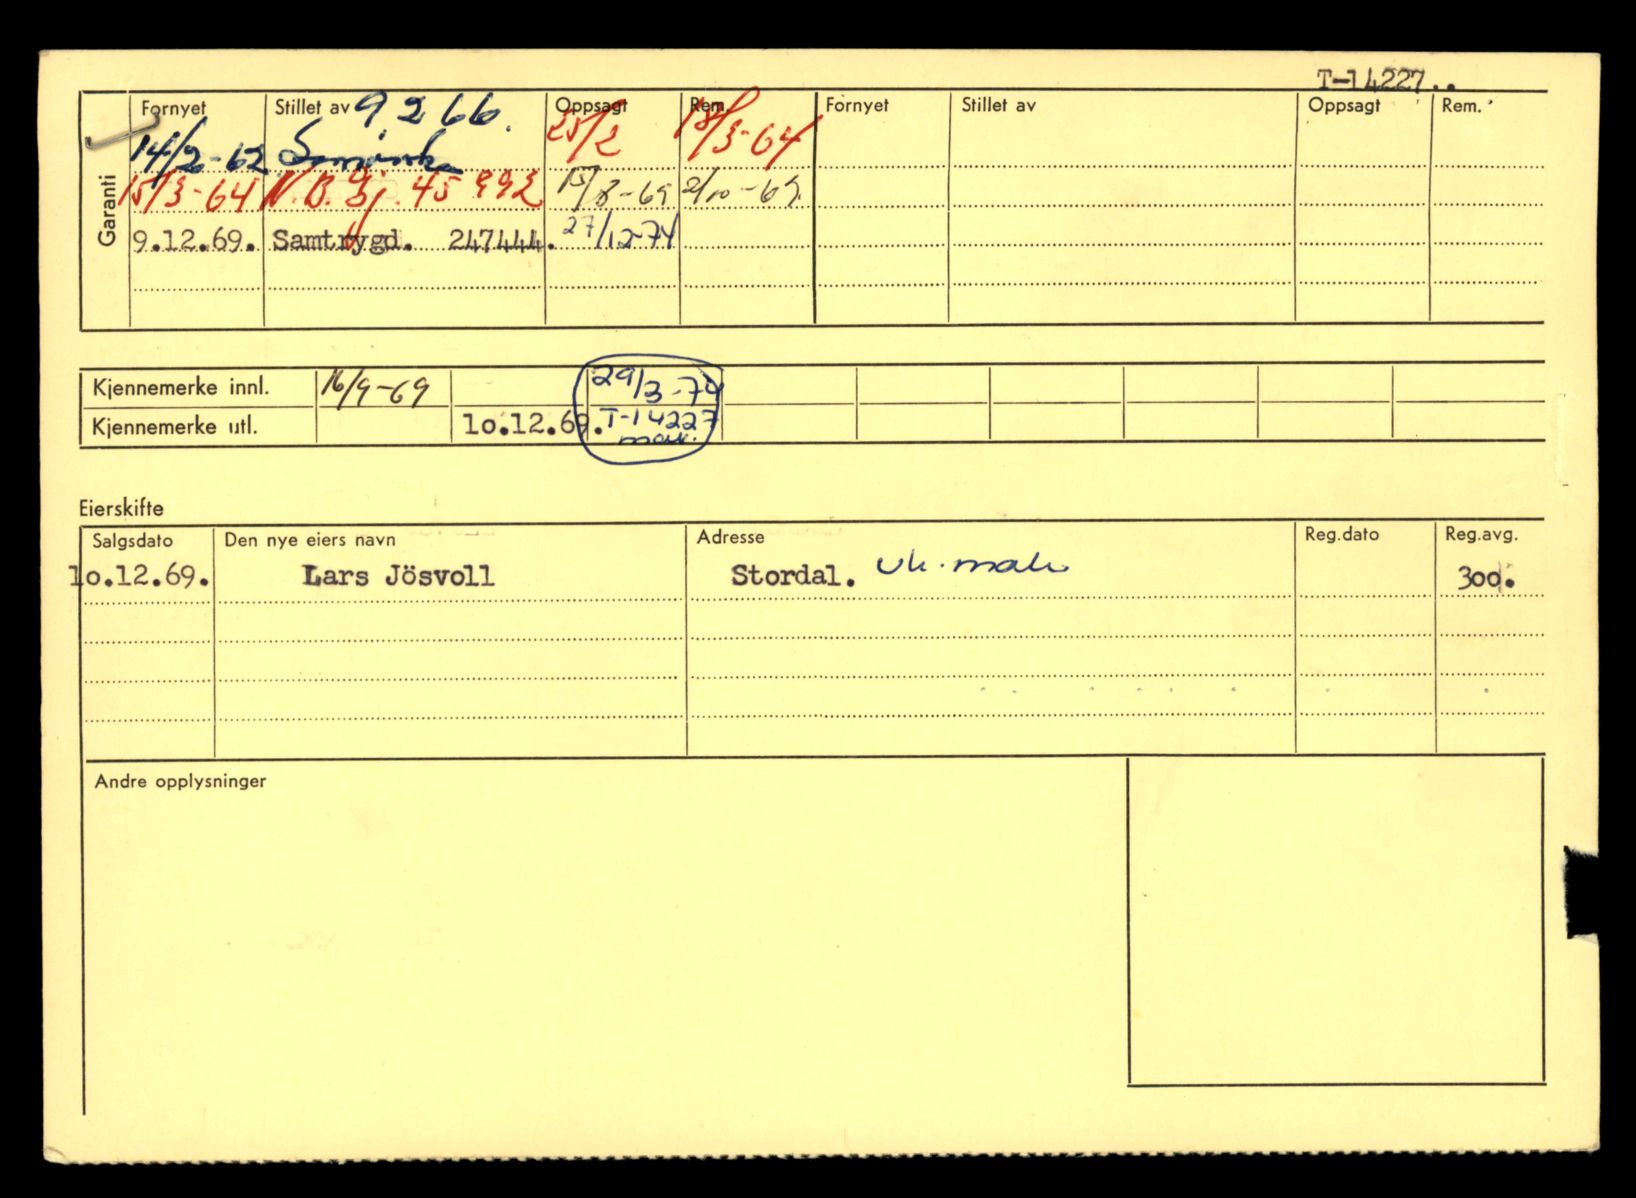 T-14227..
Garanti
Fornyet Stillet av 9266. Oppsagt Rem. Fornyet Stillet av Oppsagt Rem.
14/2-62 25/2 18/3-64
15/3-64 N.B. Gj. 45 992 15/8-69 2/10-69.
9.12.69. Samtrygd. 247444. 27/12-74
Kjennemerke innl. 16/9-69 29/3-74
Kjennemerke utl. 10.12.69. T-14227
Eierskifte
Salgsdato Den nye eiers navn Adresse Reg.dato Reg.avg.
10.12.69. Lars Jösvoll Stordal. 300.
Andre opplysninger